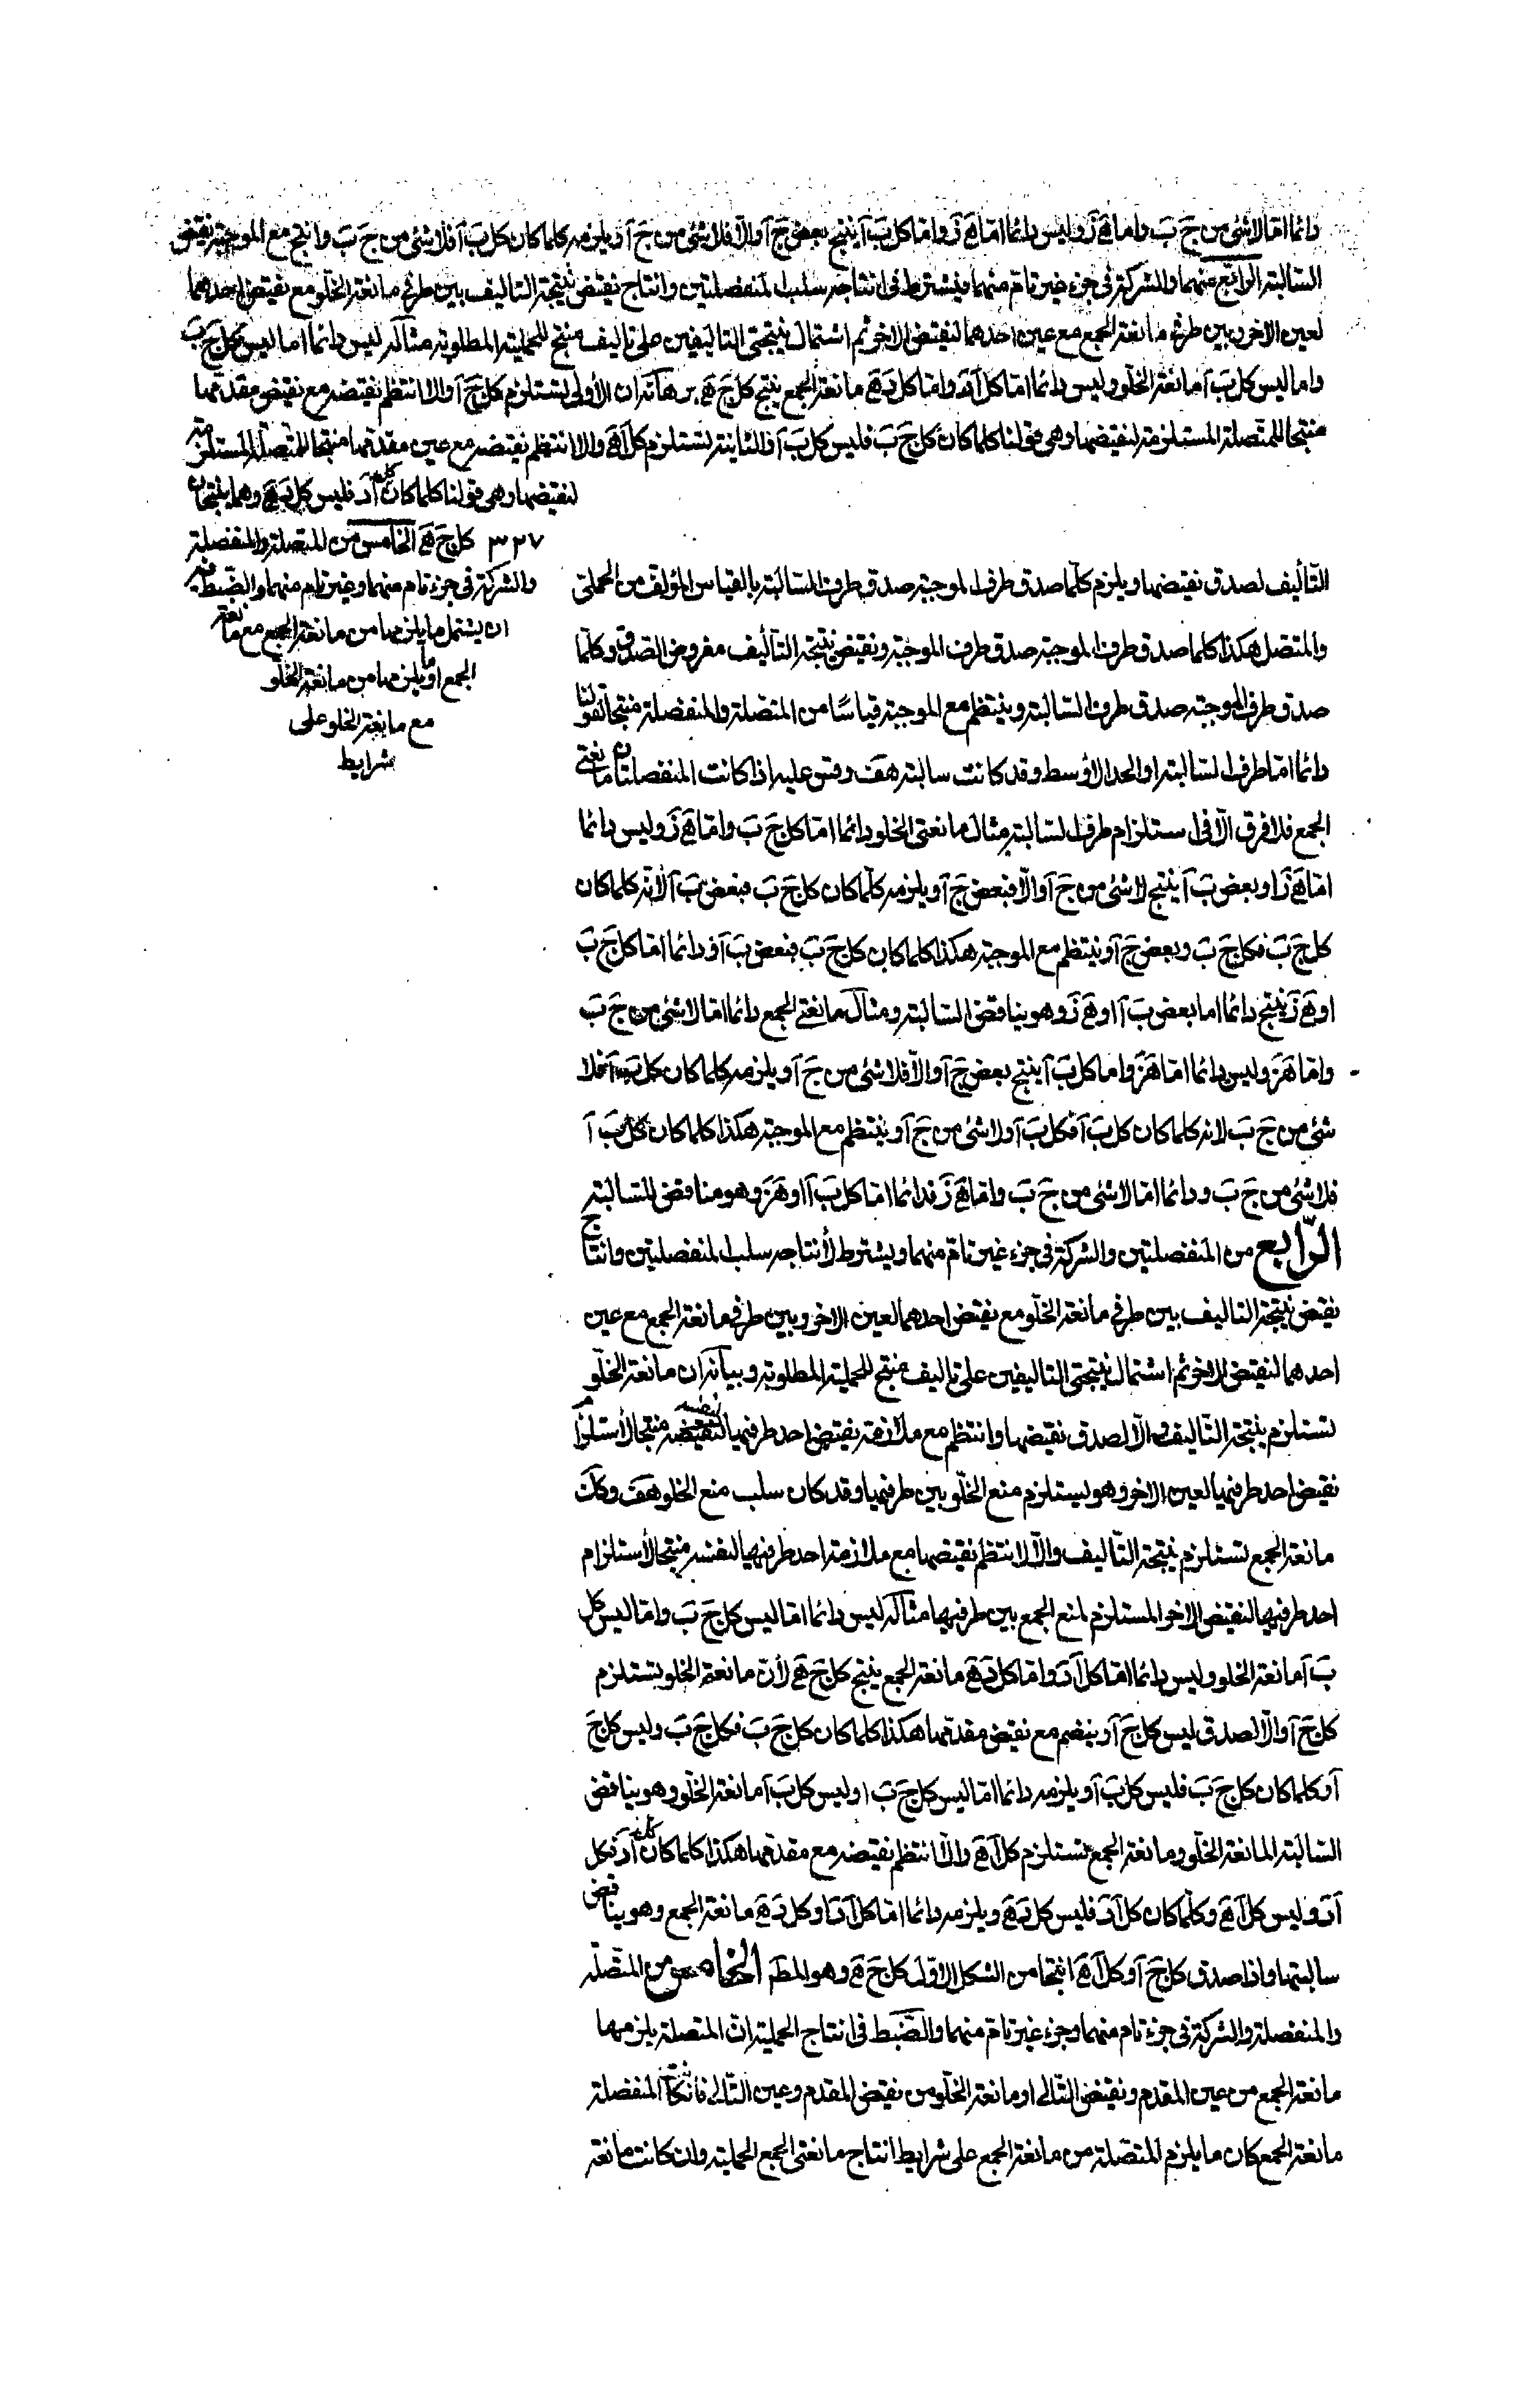 دائما اما لاشئ من ج ب واما ه ز وليس دائما اما ه ز واما كل ب آ ينتج بعض ج آ والا فلا شئ من ج آ ويلزمه كلما كان كل ب آ فلا شئ من ج ب وانتج مع الموجبة نقيض
السالبة الرابع منهما والشركة فى جزء غير تام منهما فيشترط فى انتاجه سلب المنفصلتين وانتاج نقيض نتيجة التاليف بين طرفى مانعة الخلو مع نقيض احدهما
لعين الاخر وبين طرفى مانعة الجمع مع عين احدهما لنقيض الاخر ثم اشتمال نتيجتى التاليفين على تاليف منتج للحملية المطلوبة مثاله ليس دائما اما ليس كل ج ب
واما ليس كل ب آ مانعة الخلو وليس دائما اما كل آ د واما كل د ه مانعة الجمع ينتج كل ج ه برهانه ان الأولى تستلزم كل ج آ والا انتظم نقيضه مع نقيض مقدمها
منتجا للمتصلة المستلزمة لنقيضها وهى قولنا كلما كان كل ج ب فليس كل ب آ والثانية تستلزم كل آ ه والا انتظم نقيضه مع عين مقدمها منتجا للمتصلة المستلزمة
لنقيضها وهى قولنا كلما كان كل آ د فليس كل د ه وهما ينتجان
كل ج ه الخامس من المتصلة والمنفصلة
٣٢٧
والشركة فى جزء تام منهما وغير تام منهما والضبط فيه
ان يشتمل ما يلزمها من مانعة الجمع مع مانعة
الجمع او ما يلزمها من مانعة الخلو
مع مانعة الخلو على
شرايط
التأليف لصدق نقيضها ويلزم كلما صدق طرف الموجبة صدق طرف السالبة بالقياس المؤلف من الحملى
والمتصل هكذا كلما صدق طرف الموجبة صدق طرف الموجبة ونقيض نتيجة التأليف مفروض الصدق وكلما
صدق طرف الموجبة صدق طرف السالبة وينتظم مع الموجبة قياسًا من المتصلة والمنفصلة منتجا لقولنا
دائما اما طرف السالبة او الحد الأوسط وقد كانت سالبة هف وقس عليه اذا كانت المنفصلتان مانعتى
الجمع فلا فرق الا فى استلزام طرف السالبة مثال مانعتى الخلو دائما اما كل ج ب واما ه ز وليس دائما
اما ه ز او بعض ب آ ينتج لا شئ من ج آ والا فبعض ج آ ويلزمه كلما كان كل ج ب فبعض ب آ لانه كلما كان
كل ج ب فكل ج ب وبعض ج آ وينتظم مع الموجبة هكذا كلما كان كل ج ب فبعض ب آ ودائما اما كل ج ب
او ه ز ينتج دائما اما بعض ب آ او ه ز وهو يناقض السالبة ومثال مانعتى الجمع دائما اما لا شئ من ج ب
واما ه ز وليس دائما اما ه ز واما كل ب آ ينتج بعض ج آ والا فلا شئ من ج آ ويلزمه كلما كان كل ب آ فلا
شئ من ج ب لانه كلما كان كل ب آ فكل ب آ ولا شئ من ج آ وينتظم مع الموجبة هكذا كلما كان كل ب آ
فلا شئ من ج ب ودائما اما لا شئ من ج ب واما ه ز فدائما اما كل ب آ او ه ز وهو مناقض للسالبة
الرّابع من المنفصلتين والشركة فى جزء غير تام منهما ويشترط لأنتاجه سلب المنفصلتين وانتاج
نقيض نتيجة التاليف بين طرفى مانعة الخلو مع نقيض احدهما لعين الاخر وبين طرفى مانعة الجمع مع عين
احدهما لنقيض الاخر ثم اشتمال نتيجتى التاليفين على تاليف منتج للحملية المطلوبة وبيانه ان مانعة الخلو
تستلزم نتيجة التاليف والا لصدق نقيضها وانتظم مع ملازمة نقيض احد طرفيها لنفسه منتجا لأستلزام
نقيض احد طرفيها لعين الاخر وهو يستلزم منع الخلو بين طرفيها وقد كان سلب منع الخلو هف وكك
مانعة الجمع تستلزم نتيجة التأليف والا لانتظم نقيضها مع ملازمة احد طرفيها لنفسه منتجا لأستلزام
احد طرفيها لنقيض الاخر المستلزم لمنع الجمع بين طرفيها مثاله ليس دائما اما ليس كل ج ب واما ليس كل
ب آ مانعة الخلو وليس دائما اما كل آ د واما كل د ه مانعة الجمع ينتج كل ج ه لأن مانعة الخلو تستلزم
كل ج آ والا لصدق ليس كل ج آ وينضم مع نقيض مقدمها هكذا كلما كان كل ج ب فكل ج ب وليس كل ج
آ وكلما كان كل ج ب فليس كل ب آ ويلزمه دائما اما ليس كل ج ب او ليس كل ب آ مانعة الخلو وهو يناقض
السالبة المانعة الخلو ومانعة الجمع تستلزم كل آ ه والا انتظم نقيضه مع مقدمها هكذا كلما كان كل آ د فكل
آ د وليس كل آ ه وكلما كان كل آ د فليس كل د ه ويلزمه دائما اما كل آ د او كل د ه مانعة الجمع وهو يناقض
سالبتها واذا صدق كل ج آ وكل آ ه انتجا من الشكل الاول كل ج ه وهو المط الخامس من المتصلة
والمنفصلة والشركة فى جزء تام منهما وجزء غير تام منهما والضبط فى انتاج الحملية ان المتصلة يلزمها
مانعة الجمع من عين المقدم ونقيض التالى او مانعة الخلو من نقيض المقدم وعين التالى فان كانت المنفصلة
مانعة الجمع كان ما يلزم المتصلة من مانعة الجمع على شرايط انتاج مانعتى الجمع الحملية وان كانت مانعة